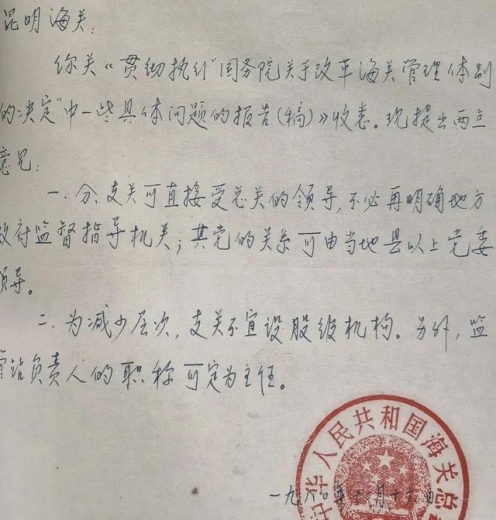 昆明海关:
你关《"贯彻执行"国务院关于改革海关管理体制
的决定"中一些具体问题的报告(稿)》收悉。现提出两点
意见:
一、分、支关可直接受总关的领导,不必再明确地方
政府监督指导机关;其党的关系可由当地县以上党委
领导。
二、为减少层次,支关不宜设股级机构。另外,监
管站负责人的职称可定为主任。
中华人民共和国海关总
一九八〇年十月十六日